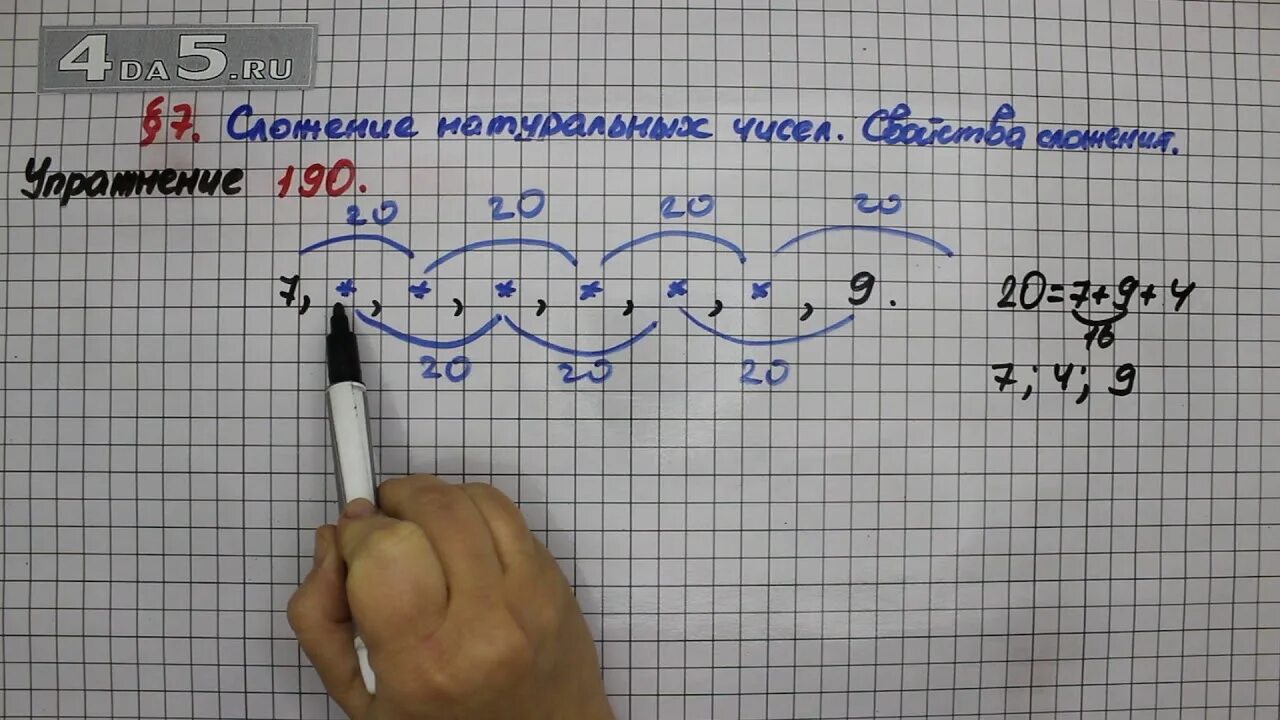 4DA5.RU
§7. Сложение натуральных чисел. Свойства сложения.
Упражнение 190.
20 20 20 20
7, *, *, *, *, *, *, 9.
20 20 20
20=7+9+4
16
7; 4; 9